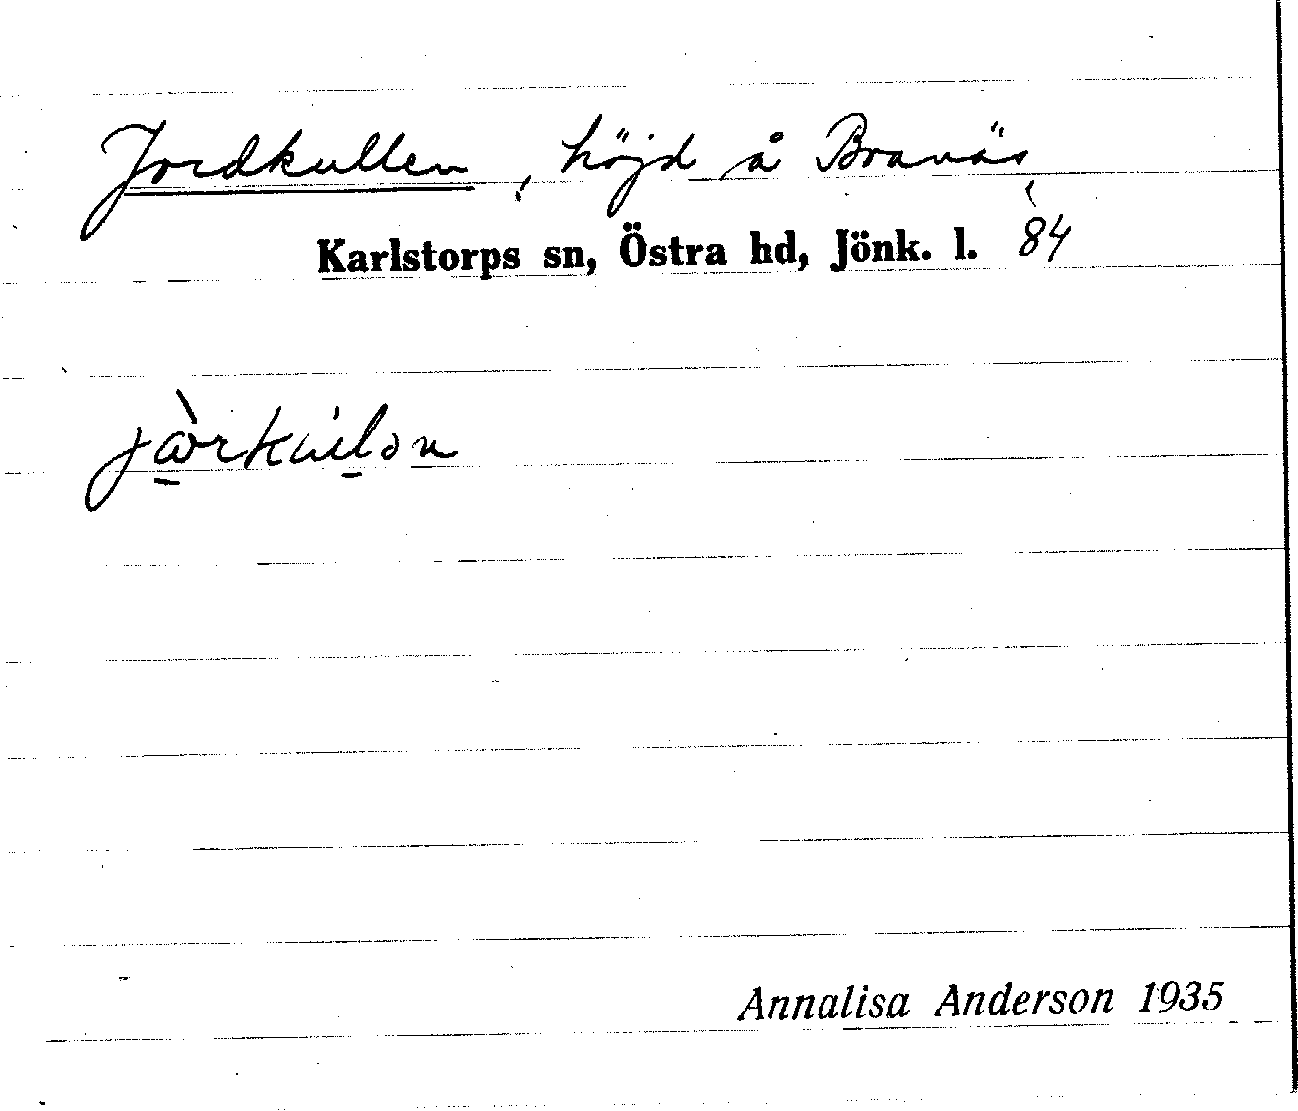 Jordkullen, höjd å Branäs,
Karlstorps sn, Östra hd, Jönk. l. 84
Annalisa Anderson 1935